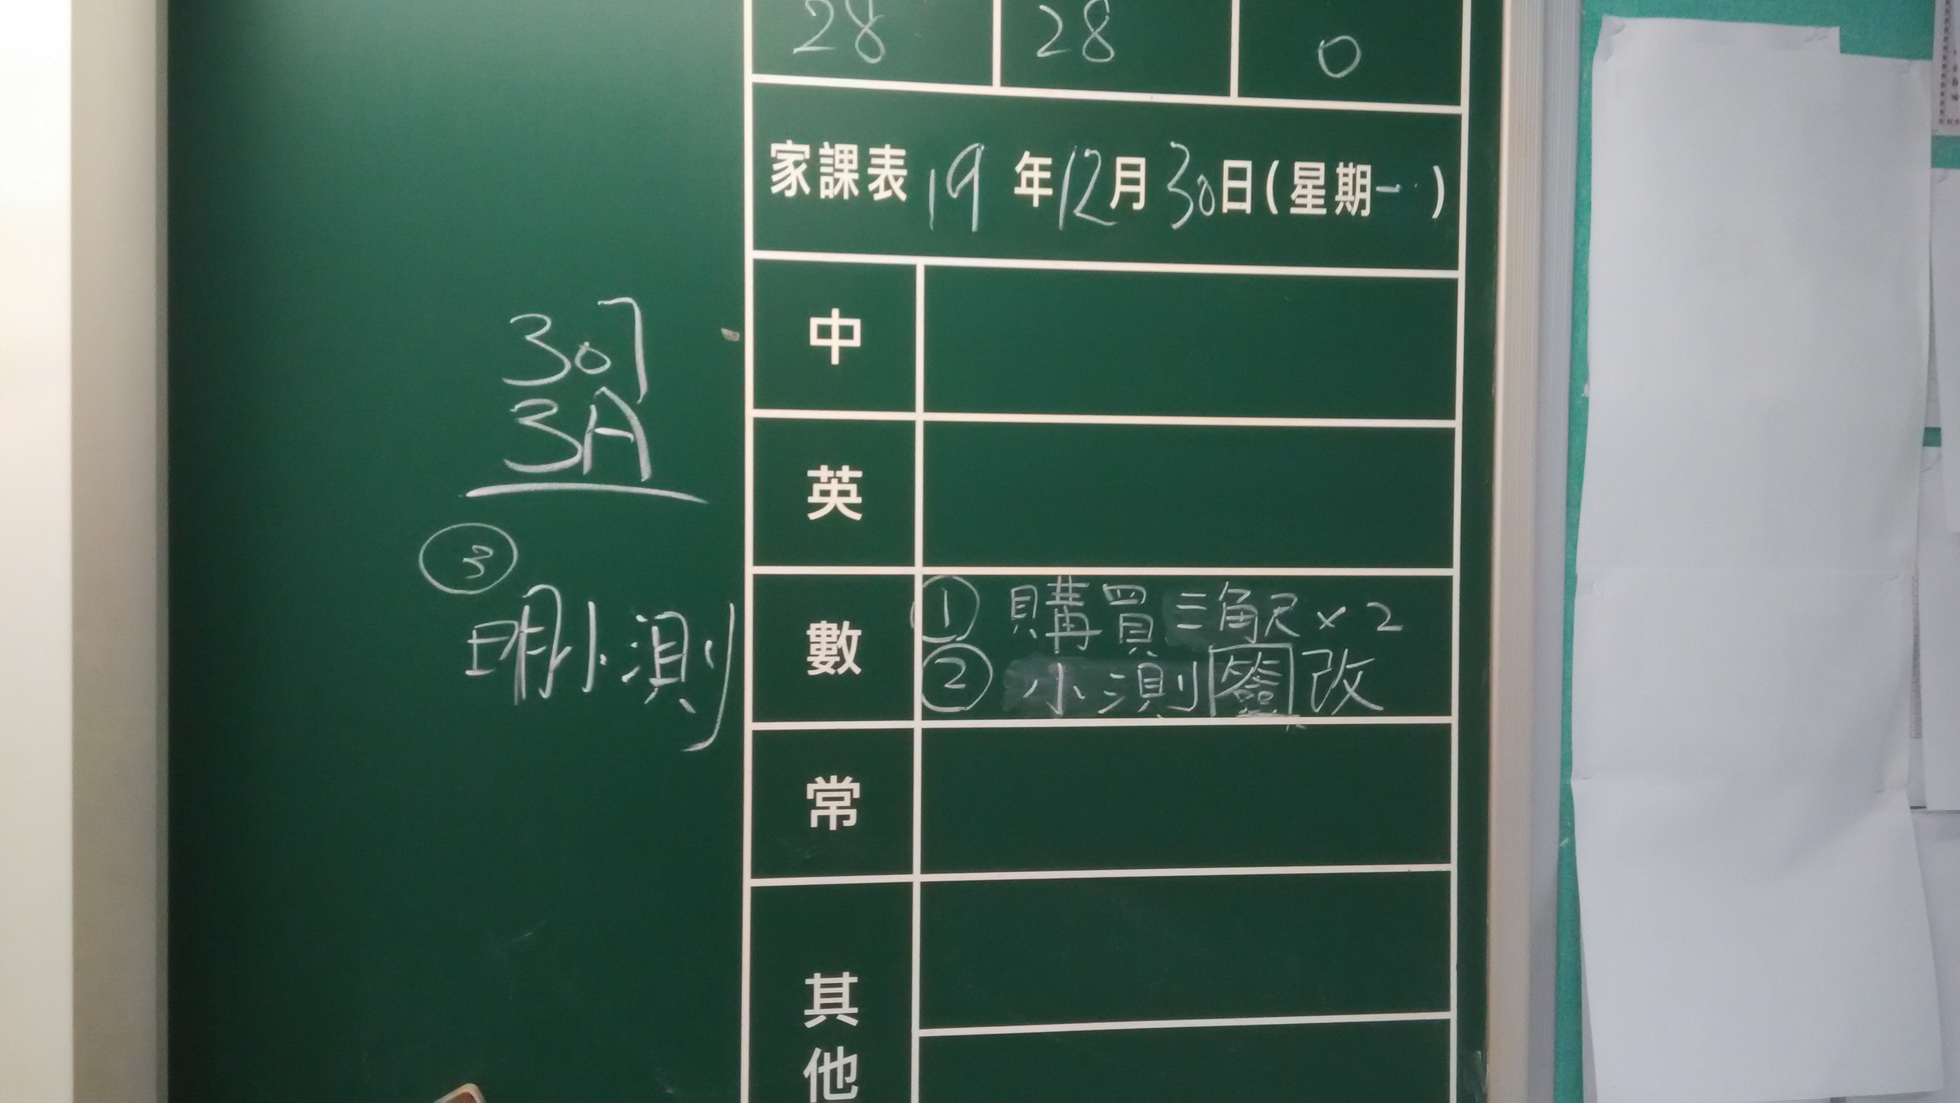 28 28 0
家課表 19年12月30日(星期一)
307
3A
中
英
③
明小測
數
① 購買三角尺×2
② 小測簽改
常
其他